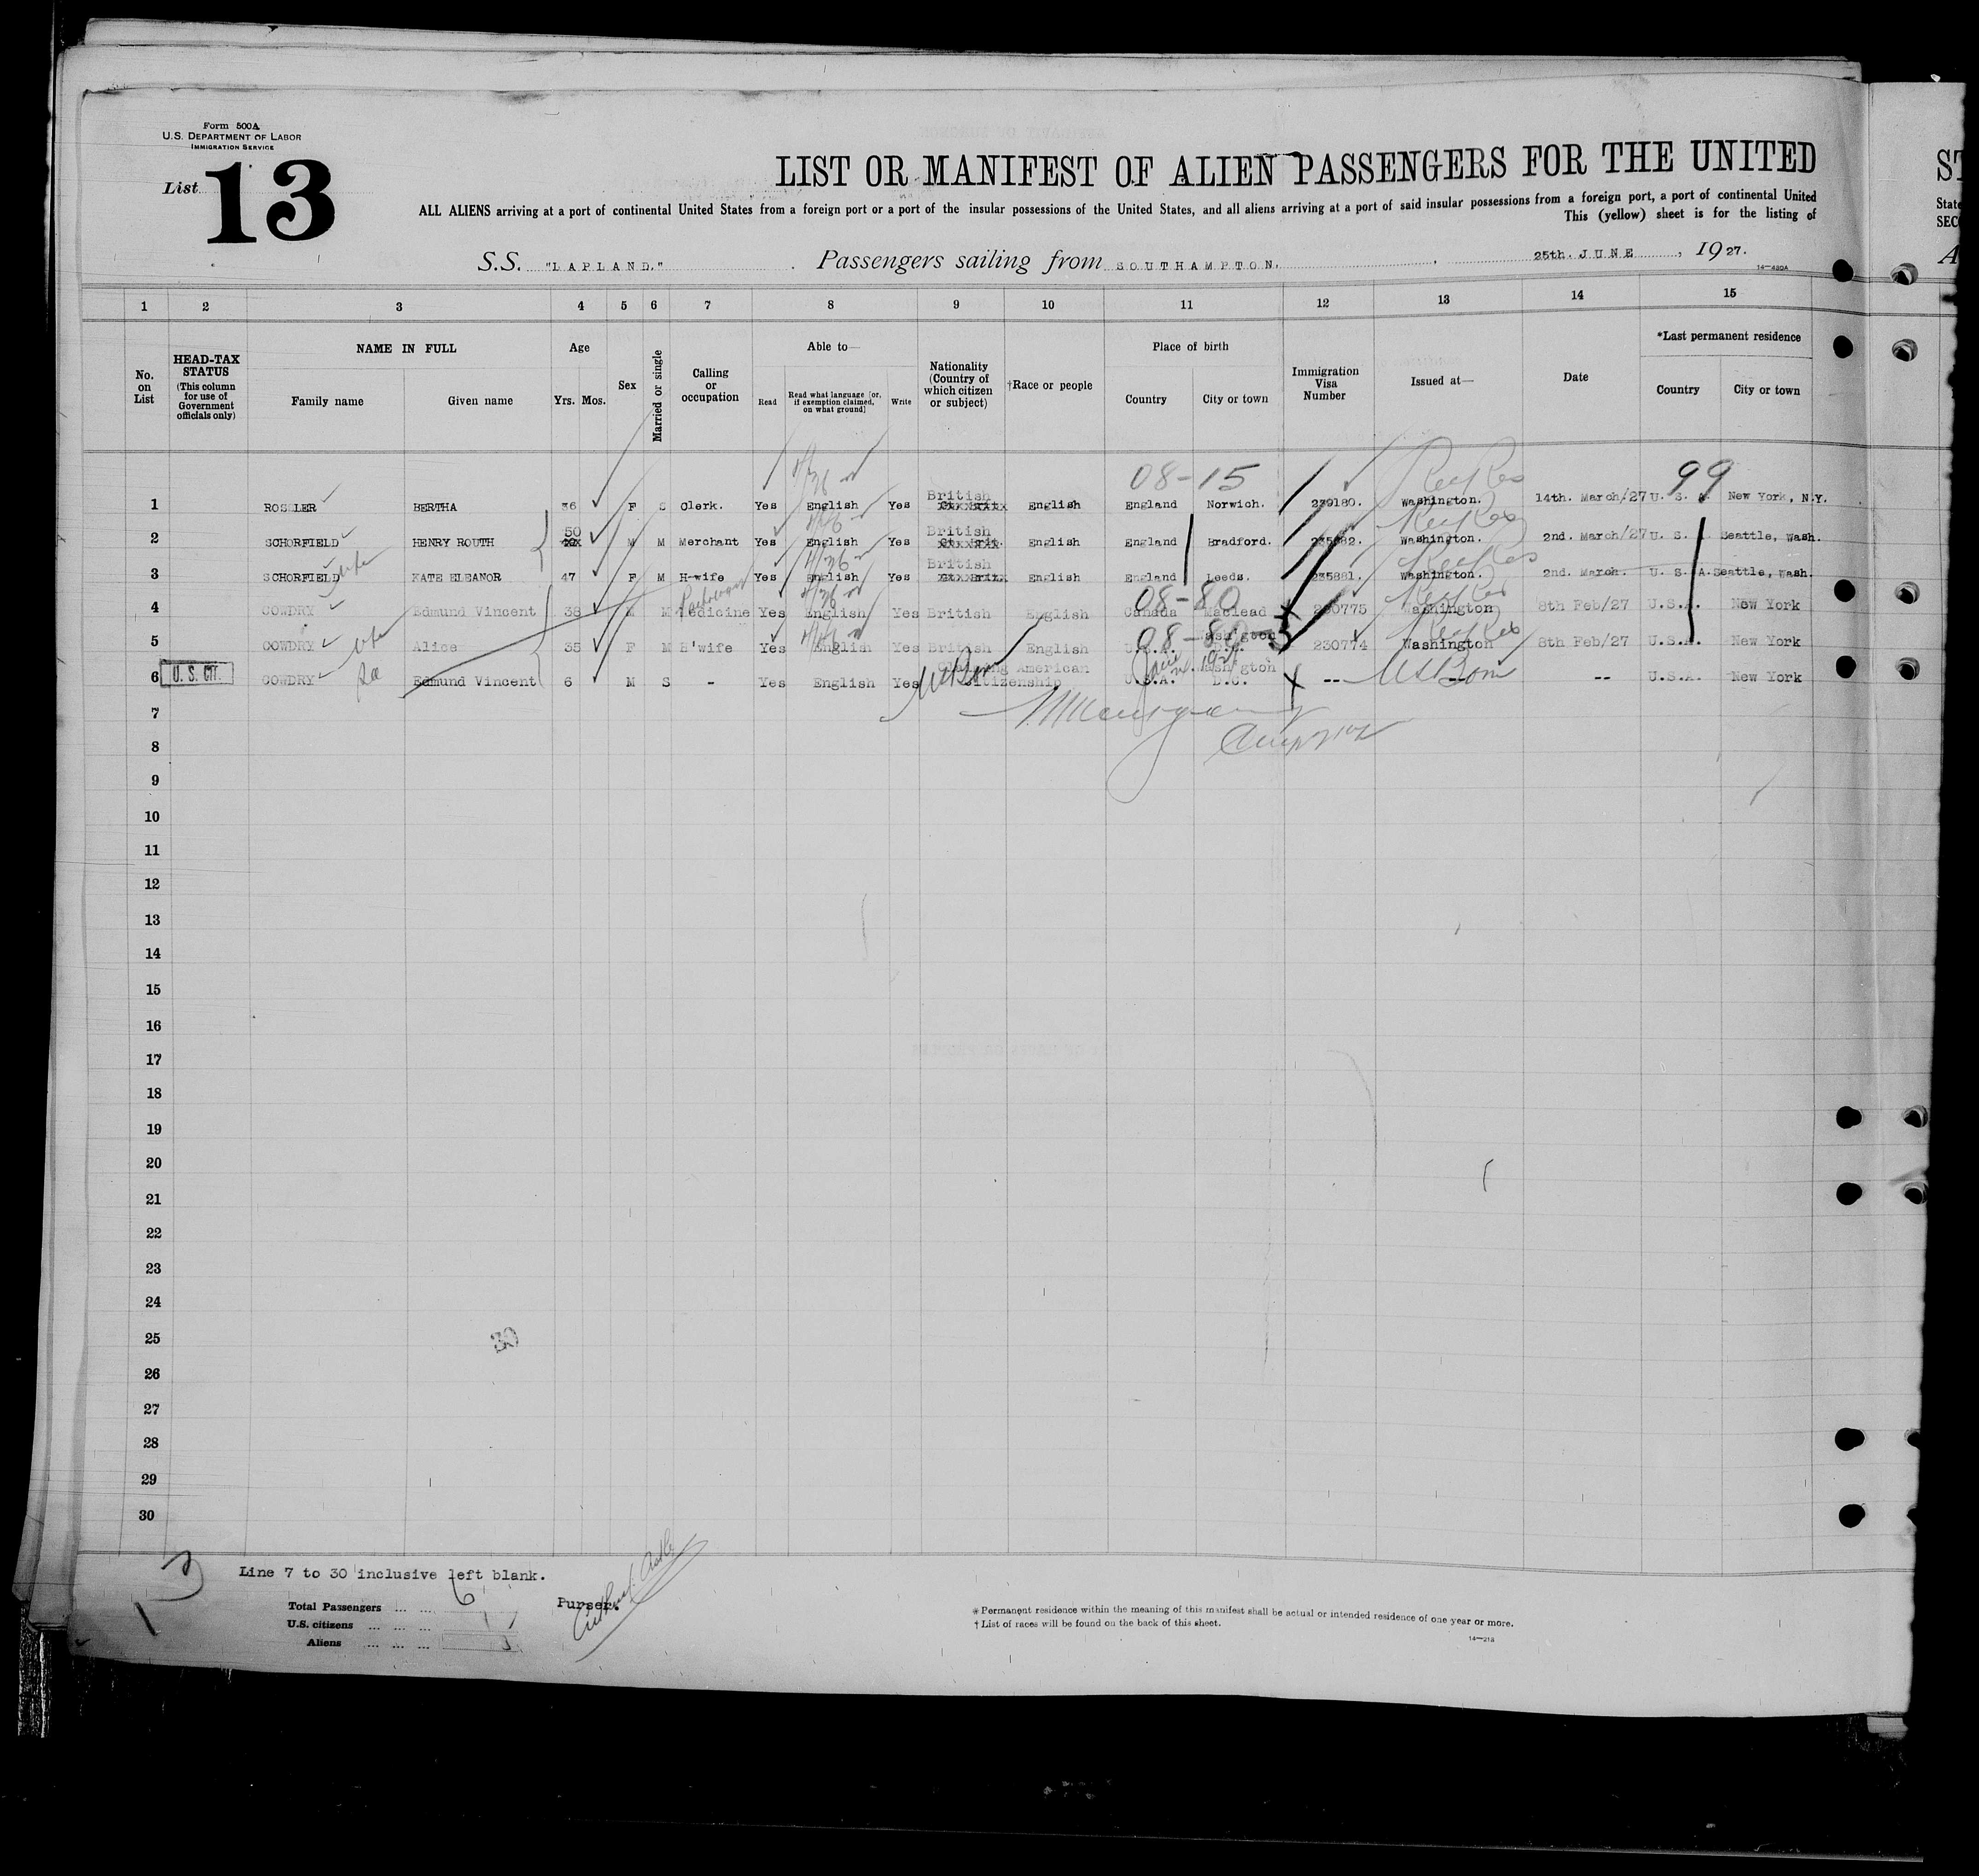 Form 500A
U.S. DEPARTMENT OF LABOR
IMMIGRATION SERVICE
List 13
LIST OR MANIFEST OF ALIEN PASSENGERS FOR THE UNITED
ST
ALL ALIENS arriving at a port of continental United States from a foreign port or a port of the insular possessions of the United States, and all aliens arriving at a port of said insular possessions from a foreign port, a port of continental United
State
This (yellow) sheet is for the listing of
SEC
S.S. "LAPLAND." Passengers sailing from SOUTHAMPTON. 25th. JUNE, 1927.
A
14-430A
1 2 3 4 5 6 7 8 9 10 11 12 13 14 15
No. on List
HEAD-TAX STATUS (This column for use of Government officials only)
NAME IN FULL
Family name Given name
Age
Yrs. Mos.
Sex
Married or single
Calling or occupation
Able to—
Read Read what language [or, if exemption claimed, on what ground] Write
Nationality (Country of which citizen or subject)
†Race or people
Place of birth
Country City or town
Immigration Visa Number
Issued at—
Date
*Last permanent residence
Country City or town
08-15 99
1 ROSSLER BERTHA 36 F S Clerk. Yes English Yes British English England Norwich. 239180. Washington. 14th. March/27 U. S. A. New York, N.Y.
2 SCHORFIELD HENRY ROUTH 50 M M Merchant Yes English Yes British English England Bradford. 235882. Washington. 2nd. March/27 U. S. A. Seattle, Wash.
3 SCHORFIELD wife KATE ELEANOR 47 F M H-wife Yes English Yes British English England Leeds. 235881. Washington. 2nd. March. U. S. A. Seattle, Wash.
08-80
4 COWDRY Edmund Vincent 38 M M Medicine Yes English Yes British English Canada Macleod 230775 Washington 8th Feb/27 U.S.A. New York
08-80
5 COWDRY wife Alice 35 F M H'wife Yes English Yes British English U.S.A. Washgton D.C. 230774 Washington 8th Feb/27 U.S.A. New York
6 U.S. CIT. COWDRY Edmund Vincent 6 M S - Yes English Yes Claiming American Citizenship U.S.A. Washgton D.C. -- US Born -- U.S.A. New York
7
8
9
10
11
12
13
14
15
16
17
18
19
20
21
22
23
24
25
30
26
27
28
29
30
Line 7 to 30 inclusive left blank.
Total Passengers ... ... 6
U.S. citizens ... ... ... 1
Aliens ... ... ...
Purser.
* Permanent residence within the meaning of this manifest shall be actual or intended residence of one year or more.
† List of races will be found on the back of this sheet.
14-213